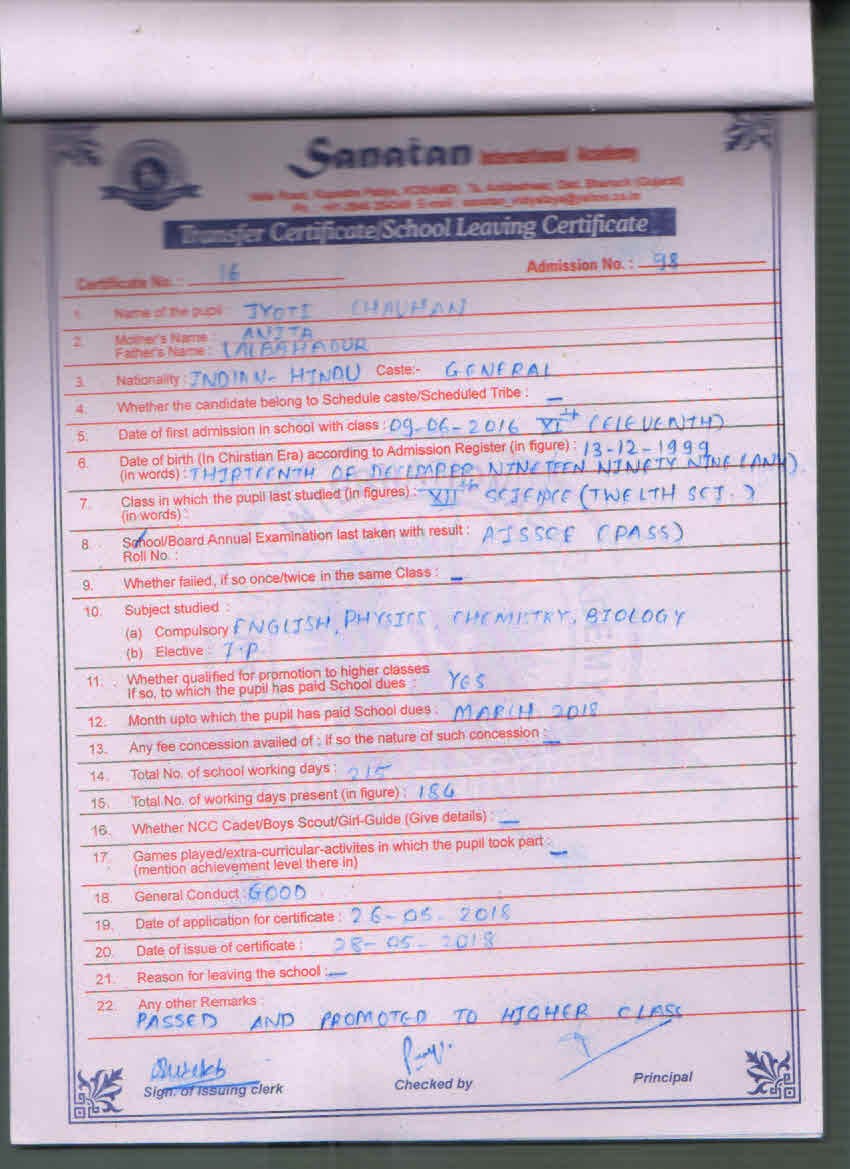 Sanatan International Academy
Transfer Certificate/School Leaving Certificate
Certificate No. : 16
Admission No. : 98
1. Name of the pupil : JYOTI CHAUHAN
2. Mother's Name : ANITA
Father's Name : LALBAHADUR
3. Nationality : INDIAN- HINDU Caste:- GENERAL
4. Whether the candidate belong to Schedule caste/Scheduled Tribe : –
5. Date of first admission in school with class : 09-06-2016 XIth (ELEVENTH)
6. Date of birth (In Chirstian Era) according to Admission Register (in figure) : 13-12-1999
(in words) : THIRTEENTH OF NINETEEN NINETY NINE
7. Class in which the pupil last studied (in figures) : XIIth SCIENCE (TWELTH SCI.)
(in words) :
8. School/Board Annual Examination last taken with result : AISSCE (PASS)
Roll No. :
9. Whether failed, if so once/twice in the same Class : –
10. Subject studied :
(a) Compulsory ENGLISH, PHYSICS, CHEMISTRY, BIOLOGY
(b) Elective : I.P
11. Whether qualified for promotion to higher classes
If so, to which the pupil has paid School dues : YES
12. Month upto which the pupil has paid School dues : MARCH 2018
13. Any fee concession availed of : if so the nature of such concession : –
14. Total No. of school working days : 215
15. Total No. of working days present (in figure) : 184
16. Whether NCC Cadet/Boys Scout/Girl-Guide (Give details) : –
17. Games played/extra-curricular-activites in which the pupil took part : –
(mention achievement level there in)
18. General Conduct : GOOD
19. Date of application for certificate : 26-05-2018
20. Date of issue of certificate : 28-05-2018
21. Reason for leaving the school : –
22. Any other Remarks :
PASSED AND PROMOTED TO HIGHER CLASS
Sign. of issuing clerk
Checked by
Principal